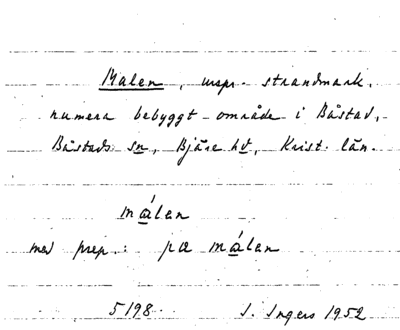 Malen, urspr. strandmark,
numera bebyggt område i Båstad,
Båstads sn, Bjäre hd, Krist. län.
mɑ́lan
med prep.: pæ mɑ́lan
5198. I. Ingers 1952